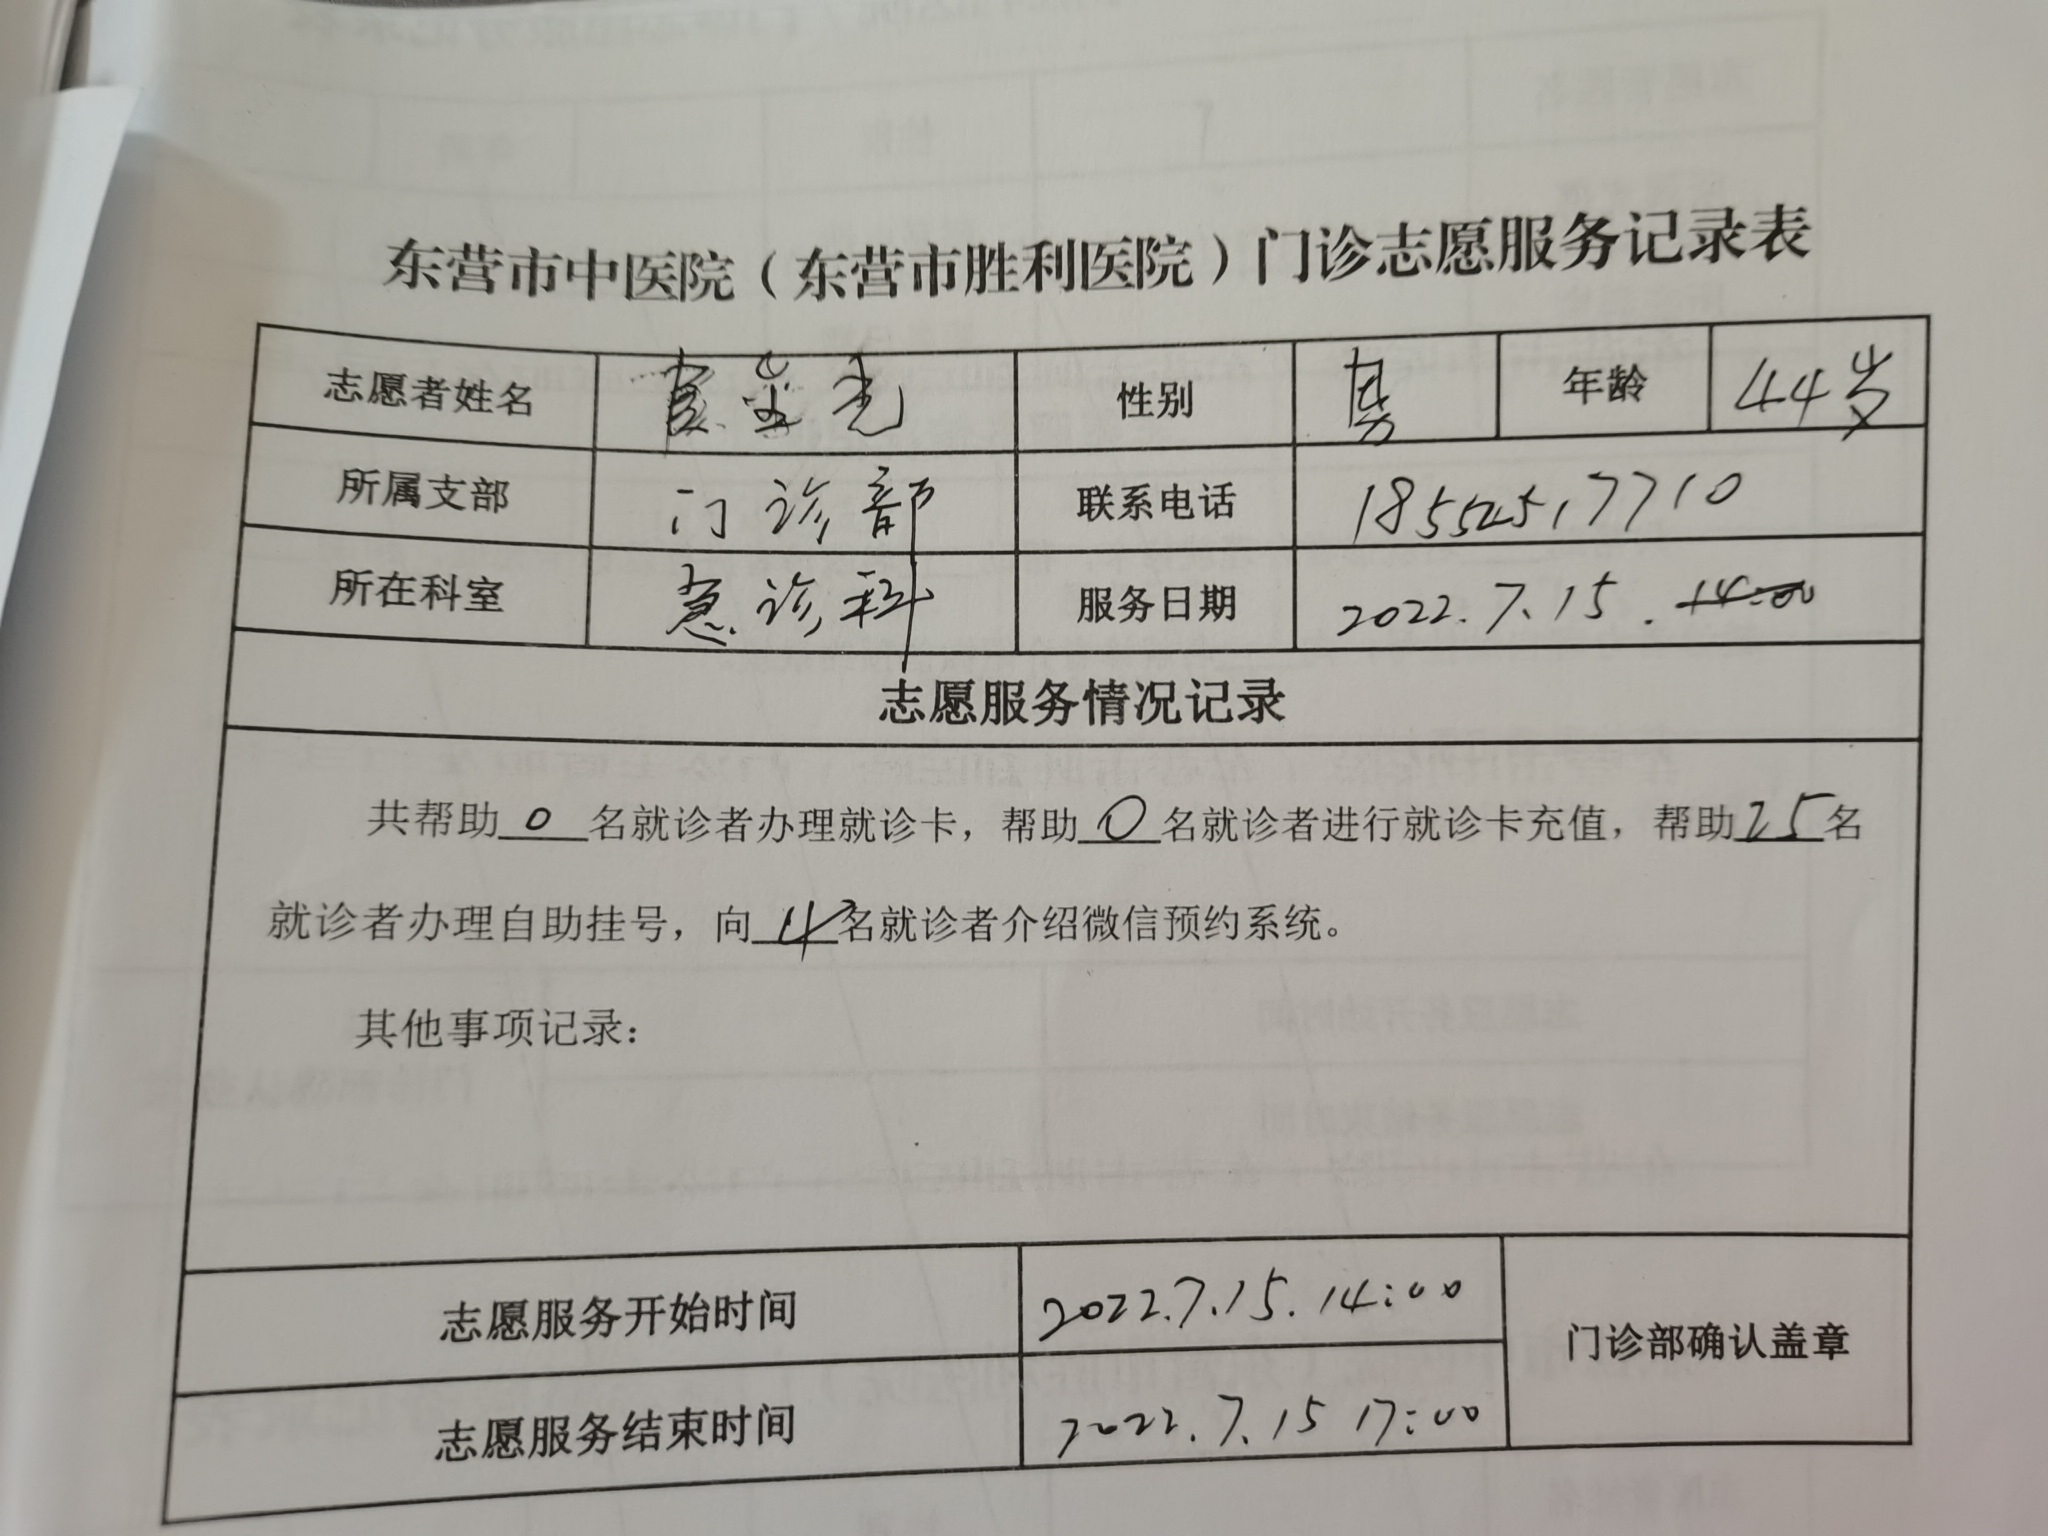 东营市中医院（东营市胜利医院）门诊志愿服务记录表
志愿者姓名 光 性别 男 年龄 44岁
所属支部 门诊部 联系电话 18554517710
所在科室 急诊科 服务日期 2022.7.15. 14:00
志愿服务情况记录
共帮助0名就诊者办理就诊卡，帮助0名就诊者进行就诊卡充值，帮助25名
就诊者办理自助挂号，向4名就诊者介绍微信预约系统。
其他事项记录：
志愿服务开始时间 2022.7.15.14:00
门诊部确认盖章
志愿服务结束时间 2022.7.15 17:00